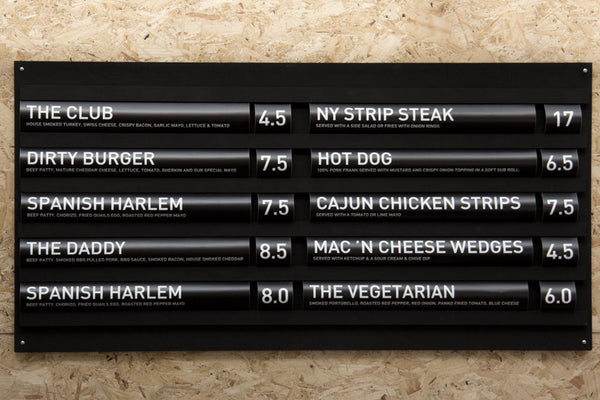 THE CLUB 4.5
HOUSE SMOKED TURKEY, SWISS CHEESE, CRISPY BACON, GARLIC MAYO, LETTUCE & TOMATO
DIRTY BURGER 7.5
BEEF PATTY, MATURE CHEDDAR CHEESE, LETTUCE, TOMATO, GHERKIN AND OUR SPECIAL MAYO.
SPANISH HARLEM 7.5
BEEF PATTY, CHORIZO, FRIED QUAILS EGG, ROASTED RED PEPPER MAYO
THE DADDY 8.5
BEEF PATTY, SMOKED BBQ PULLED PORK, BBQ SAUCE, SMOKED BACON, HOUSE SMOKED CHEDDAR
SPANISH HARLEM 8.0
BEEF PATTY, CHORIZO, FRIED QUAILS EGG, ROASTED RED PEPPER MAYO
NY STRIP STEAK 17
SERVED WITH A SIDE SALAD OR FRIES WITH ONION RINGS
HOT DOG 6.5
100% PORK FRANK SERVED WITH MUSTARD AND CRISPY ONION TOPPING IN A SOFT SUB ROLL.
CAJUN CHICKEN STRIPS 7.5
SERVED WITH A TOMATO OR LIME MAYO
MAC 'N CHEESE WEDGES 4.5
SERVED WITH KETCHUP & A SOUR CREAM & CHIVE DIP
THE VEGETARIAN 6.0
SMOKED PORTOBELLO, ROASTED RED PEPPER, RED ONION, PANKO FRIED TOMATO, BLUE CHEESE